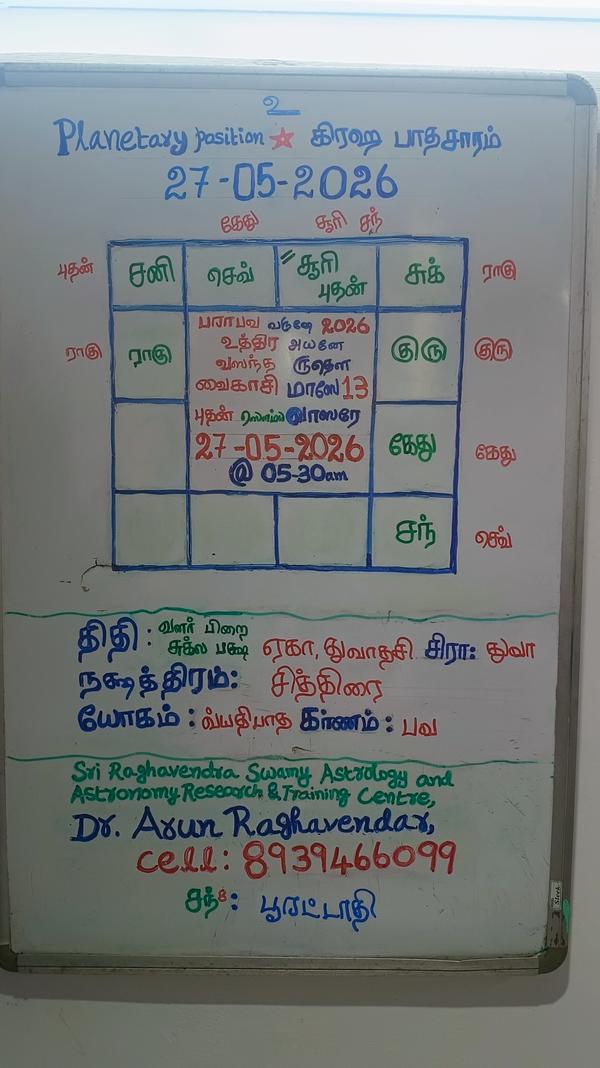 உ
Planetary position ☆ கிரஹ பாதசாரம்
27-05-2026
கேது சூரி சந்
புதன் சனி செவ் சூரி புதன் சுக் ராகு
பராபவ வருஷே 2026
உத்திர அயனே
ராகு ராகு வஸந்த ருதௌ குரு குரு
வைகாசி மாஸே 13
புதன் வாஸரே
27-05-2026 கேது கேது
@ 05-30am
சந் செவ்
திதி : வளர் பிறை
சுக்ல பக்ஷ ஏகா, துவாதசி சிரா: துவா
நக்ஷத்திரம்: சித்திரை
யோகம் : வ்யதிபாத கரணம் : பவ
Sri Raghavendra Swamy Astrology and
Astronomy Research & Training Centre,
Dr. Arun Raghavendar,
cell: 8939466099
சந்8: பூரட்டாதி